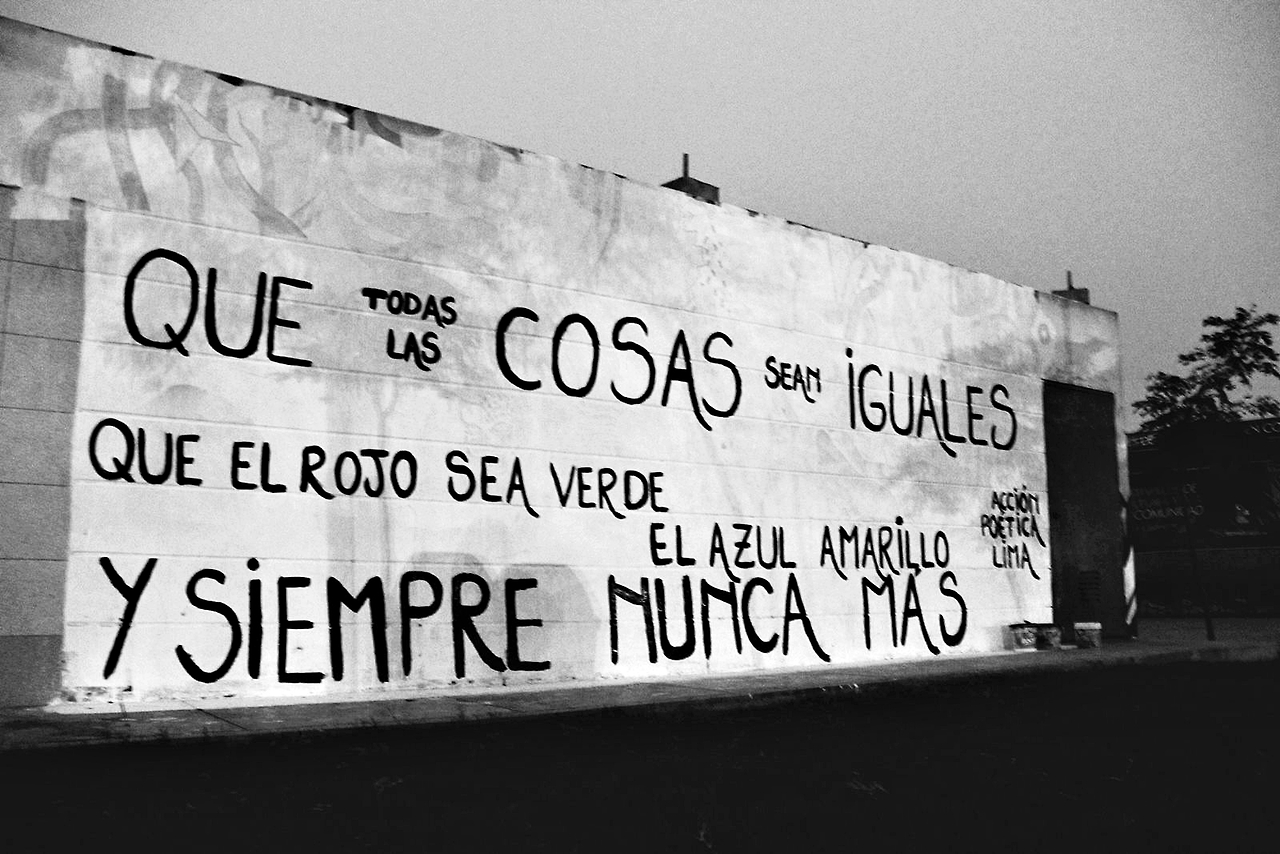 QUE TODAS LAS COSAS SEAN iGUALES
QUE EL ROJO SEA VERDE
EL AZUL AMARiLLO
Y SiEMPRE NUNCA MAS
ACCiÓN
POÉTiCA
LiMA
COMUNIDAD